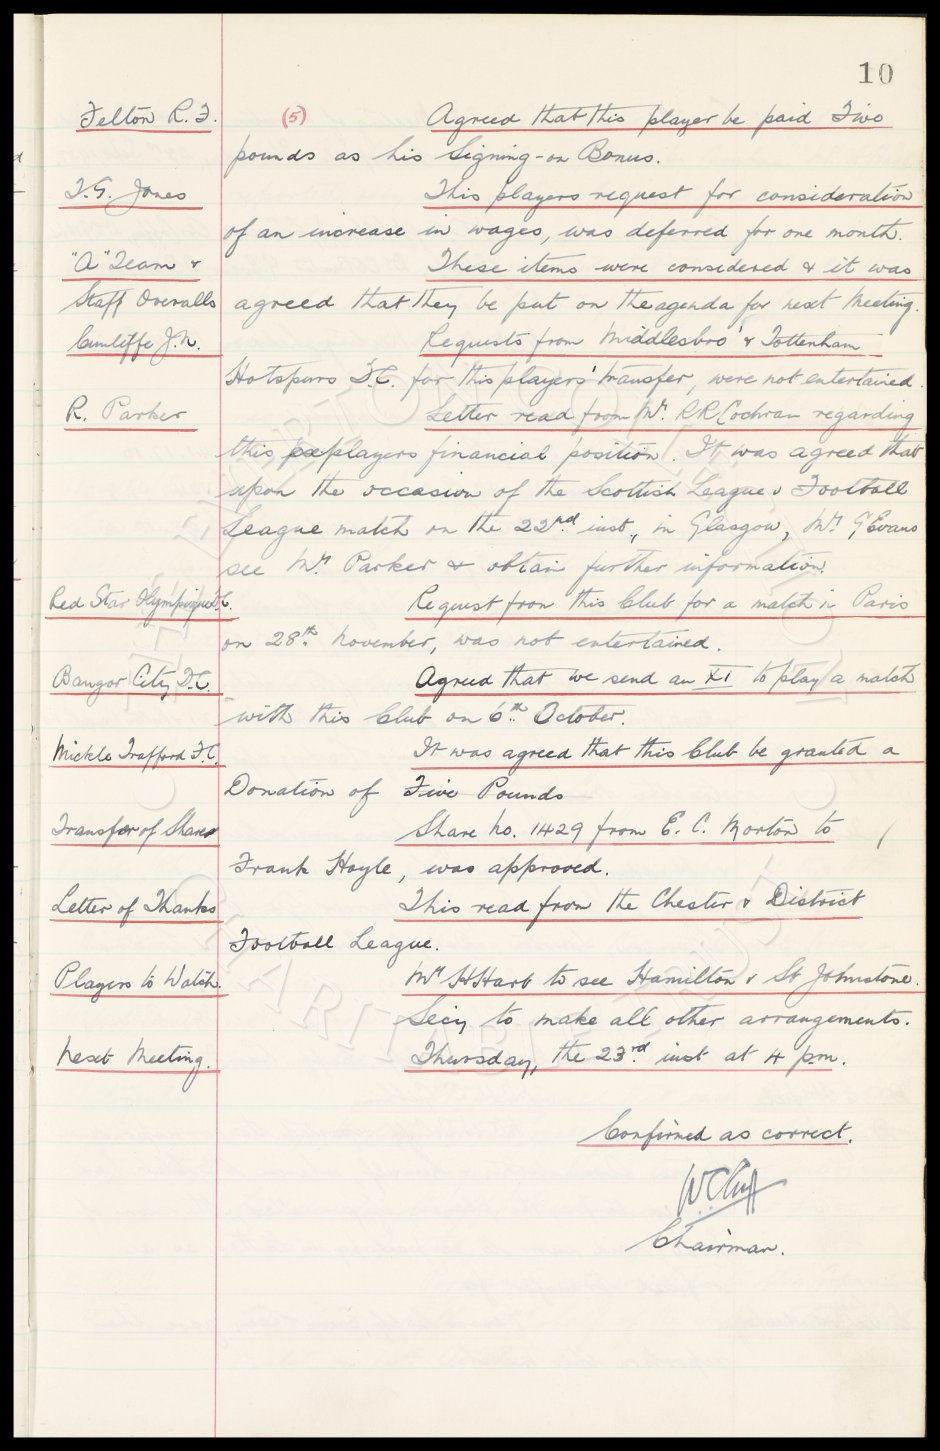 10
Felton R. F. (5) Agreed that this player be paid Five
pounds as his Signing-on Bonus.
T.G. Jones This players request for consideration
of an increase in wages, was deferred for one month.
"A" Team & These items were considered & it was
Staff Overalls agreed that they be put on the agenda for next Meeting.
Cunliffe J.N. Requests from Middlesbro' & Tottenham
Hotspurs F.C. for this players' transfer, were not entertained.
R. Parker Letter read from Mr. R R Cochran regarding
this players financial position. It was agreed that
upon the occasion of the Scottish League v Football
League match on the 22nd inst, in Glasgow, Mr. G Evans
see Mr. Parker & obtain further information.
Red Star Olympique F.C. Request from this Club for a match in Paris
on 28th November, was not entertained.
Bangor City F.C. Agreed that we send an XI to play a match
with this Club on 6th October.
Mickle Trafford F.C. It was agreed that this Club be granted a
Donation of Five Pounds
Transfer of Shares Share No. 1429 from E. C. Morton to
Frank Hoyle, was approved.
Letter of Thanks This read from the Chester & District
Football League.
Players to Watch. Mr H Hart to see Hamilton v St Johnstone.
Secy to make all other arrangements.
Next Meeting. Thursday, the 23rd inst at 4 pm.
Confirmed as correct.
W C Cuff
Chairman.